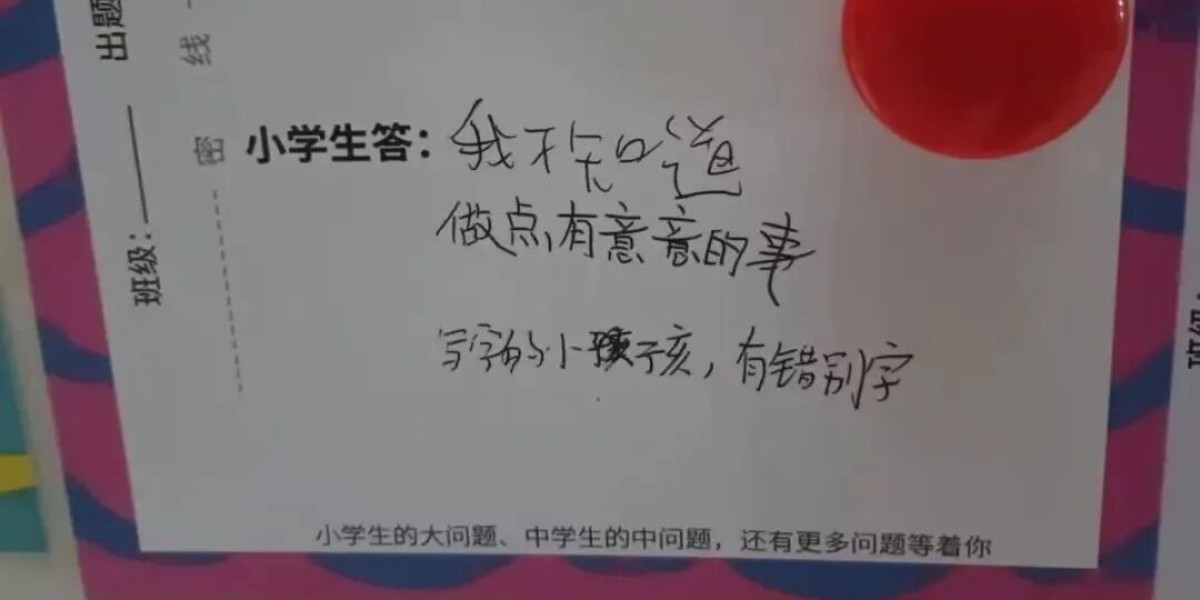 出题
线
密
班级：
小学生答：我不知道
做点有意意的事
写字的小孩，有错别字
小学生的大问题、中学生的中问题，还有更多问题等着你